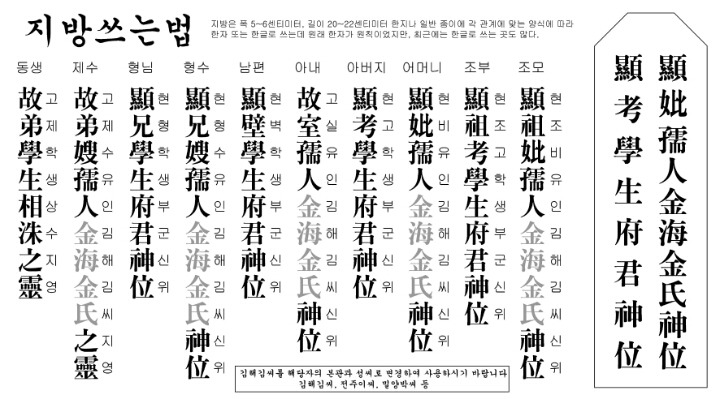 지방쓰는법
지방은 폭 5~6센티미터, 길이 20~22센티미터 한지나 일반 종이에 각 관계에 맞는 양식에 따라
한자 또는 한글로 쓰는데 원래 한자가 원칙이었지만, 최근에는 한글로 쓰는 곳도 많다.
동생
故弟學生相洙之靈
고제학생상수지영
제수
故弟嫂孺人金海金氏之靈
고제수유인김해김씨지영
형님
顯兄學生府君神位
현형학생부군신위
형수
顯兄嫂孺人金海金氏神位
현형수유인김해김씨신위
남편
顯壁學生府君神位
현벽학생부군신위
아내
故室孺人金海金氏神位
고실유인김해김씨신위
아버지
顯考學生府君神位
현고학생부군신위
어머니
顯妣孺人金海金氏神位
현비유인김해김씨신위
조부
顯祖考學生府君神位
현조고학생부군신위
조모
顯祖妣孺人金海金氏神位
현조비유인김해김씨신위
김해김씨를 해당자의 본관과 성씨로 변경하여 사용하시기 바랍니다
김해김씨, 전주이씨, 밀양박씨 등
顯考學生府君神位
顯妣孺人金海金氏神位